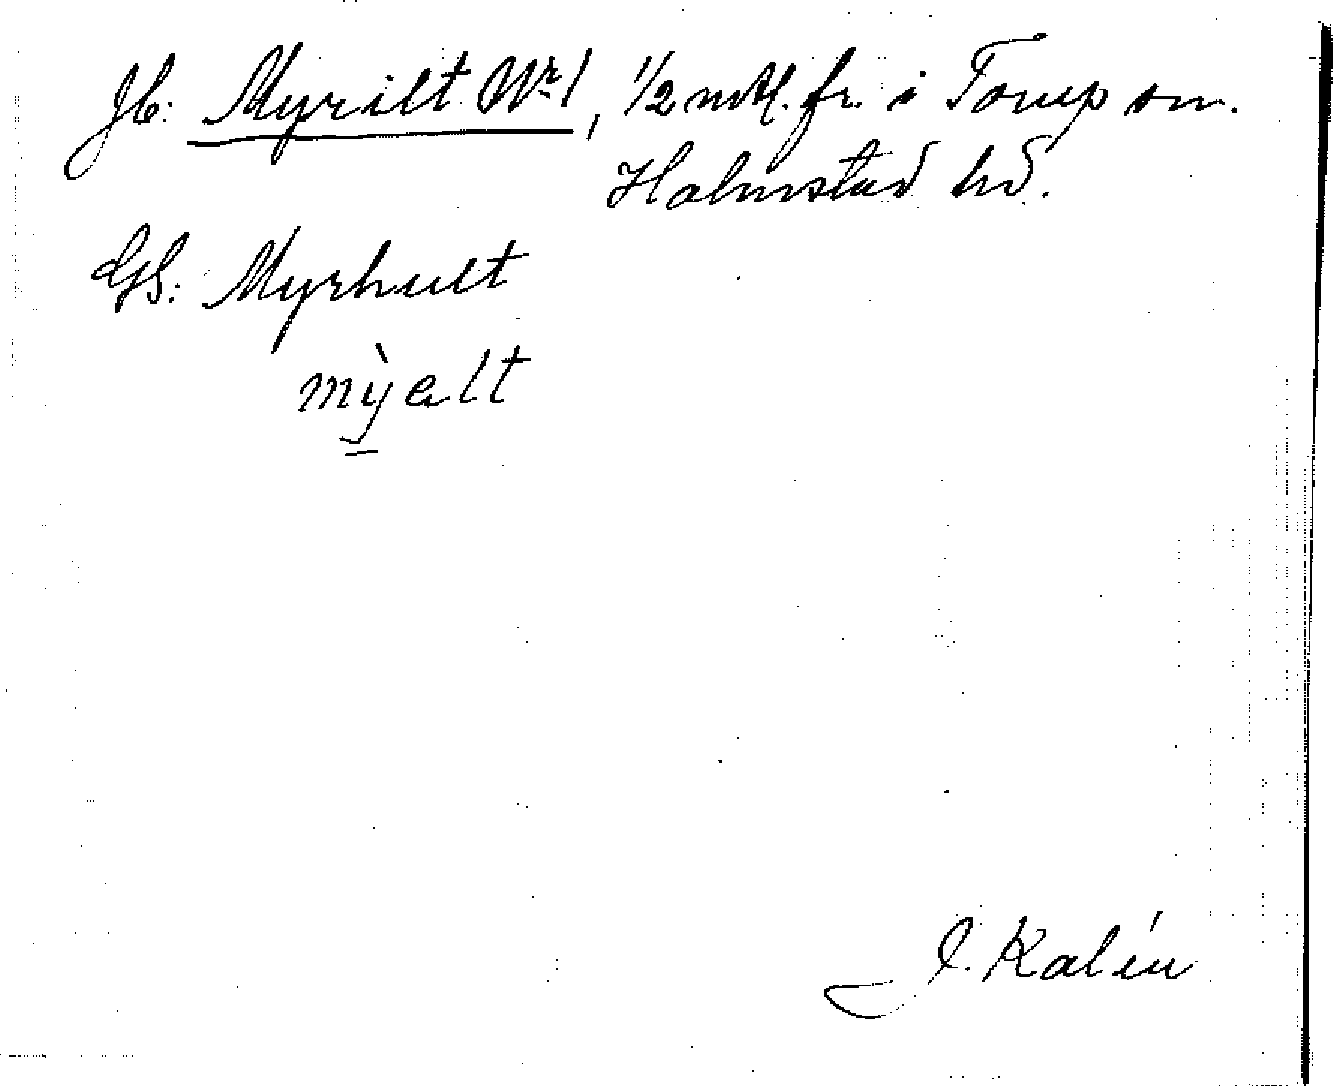 Jb: Myrilt Nr 1, 1/2 mtl. fr. i Torup sn.
Halmstad hd.
GS: Myrhult
mỳalt
J. Kalén